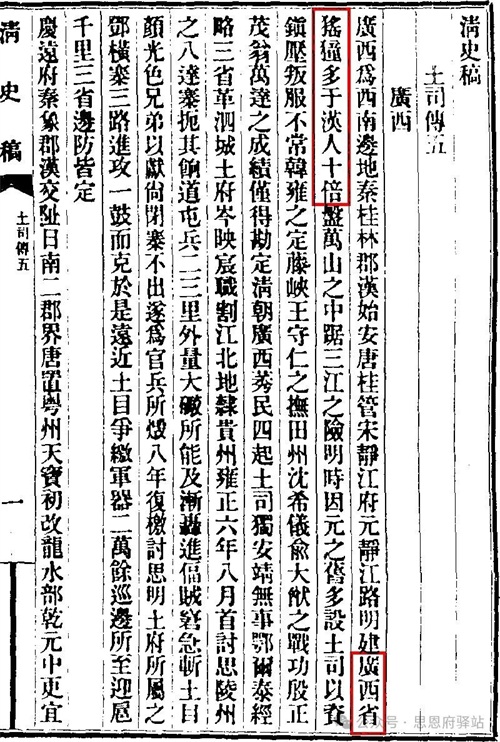 淸史稿
土司傳五
廣西
廣西爲西南邊地秦桂林郡漢始安唐桂管宋靜江府元靜江路明建廣西省
猺獞多于漢人十倍盤萬山之中踞三江之險明時因元之舊多設土司以資
鎭壓叛服不常韓雍之定藤峽王守仁之撫田州沈希儀兪大猷之戰功殷正
茂翁萬達之成績僅得勘定淸朝廣西莠民四起土司獨安靖無事鄂爾泰經
略三省革泗城土府岑映宸職割江北地隸貴州雍正六年八月首討思陵州
之八達寨扼其餉道屯兵二三里外量大礮所能及漸轟進偪賊窘急斬土目
顏光色兄弟以獻尙閉寨不出遂爲官兵所燬八年復檄討思明土府所屬之
鄧橫寨三路進攻一鼓而克於是遠近土目爭繳軍器二萬餘巡邊所至迎扈
千里三省邊防皆定
慶遠府秦象郡漢交趾日南二郡界唐置粵州天寶初改龍水部乾元中更宜
淸史稿
土司傳五
一
公众号·思恩府驿站